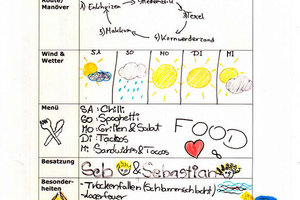 Route/
Manöver
1) Enkhuizen
2) Medemblik
3) Texel
4) Kornwerderzand
5) Makkum
Wind &
Wetter
SA
SO
MO
DI
MI
Menü
SA: Chilli
SO: Spaghetti
Mo: Grillen & Salat
Di: Tacos
Mi: Sandwiches & Tacos
FOOD
Besatzung
Seb & Sebastian
Besonder-
heiten
- Trockenfallen (Schlammschlacht)
- Lagerfeuer